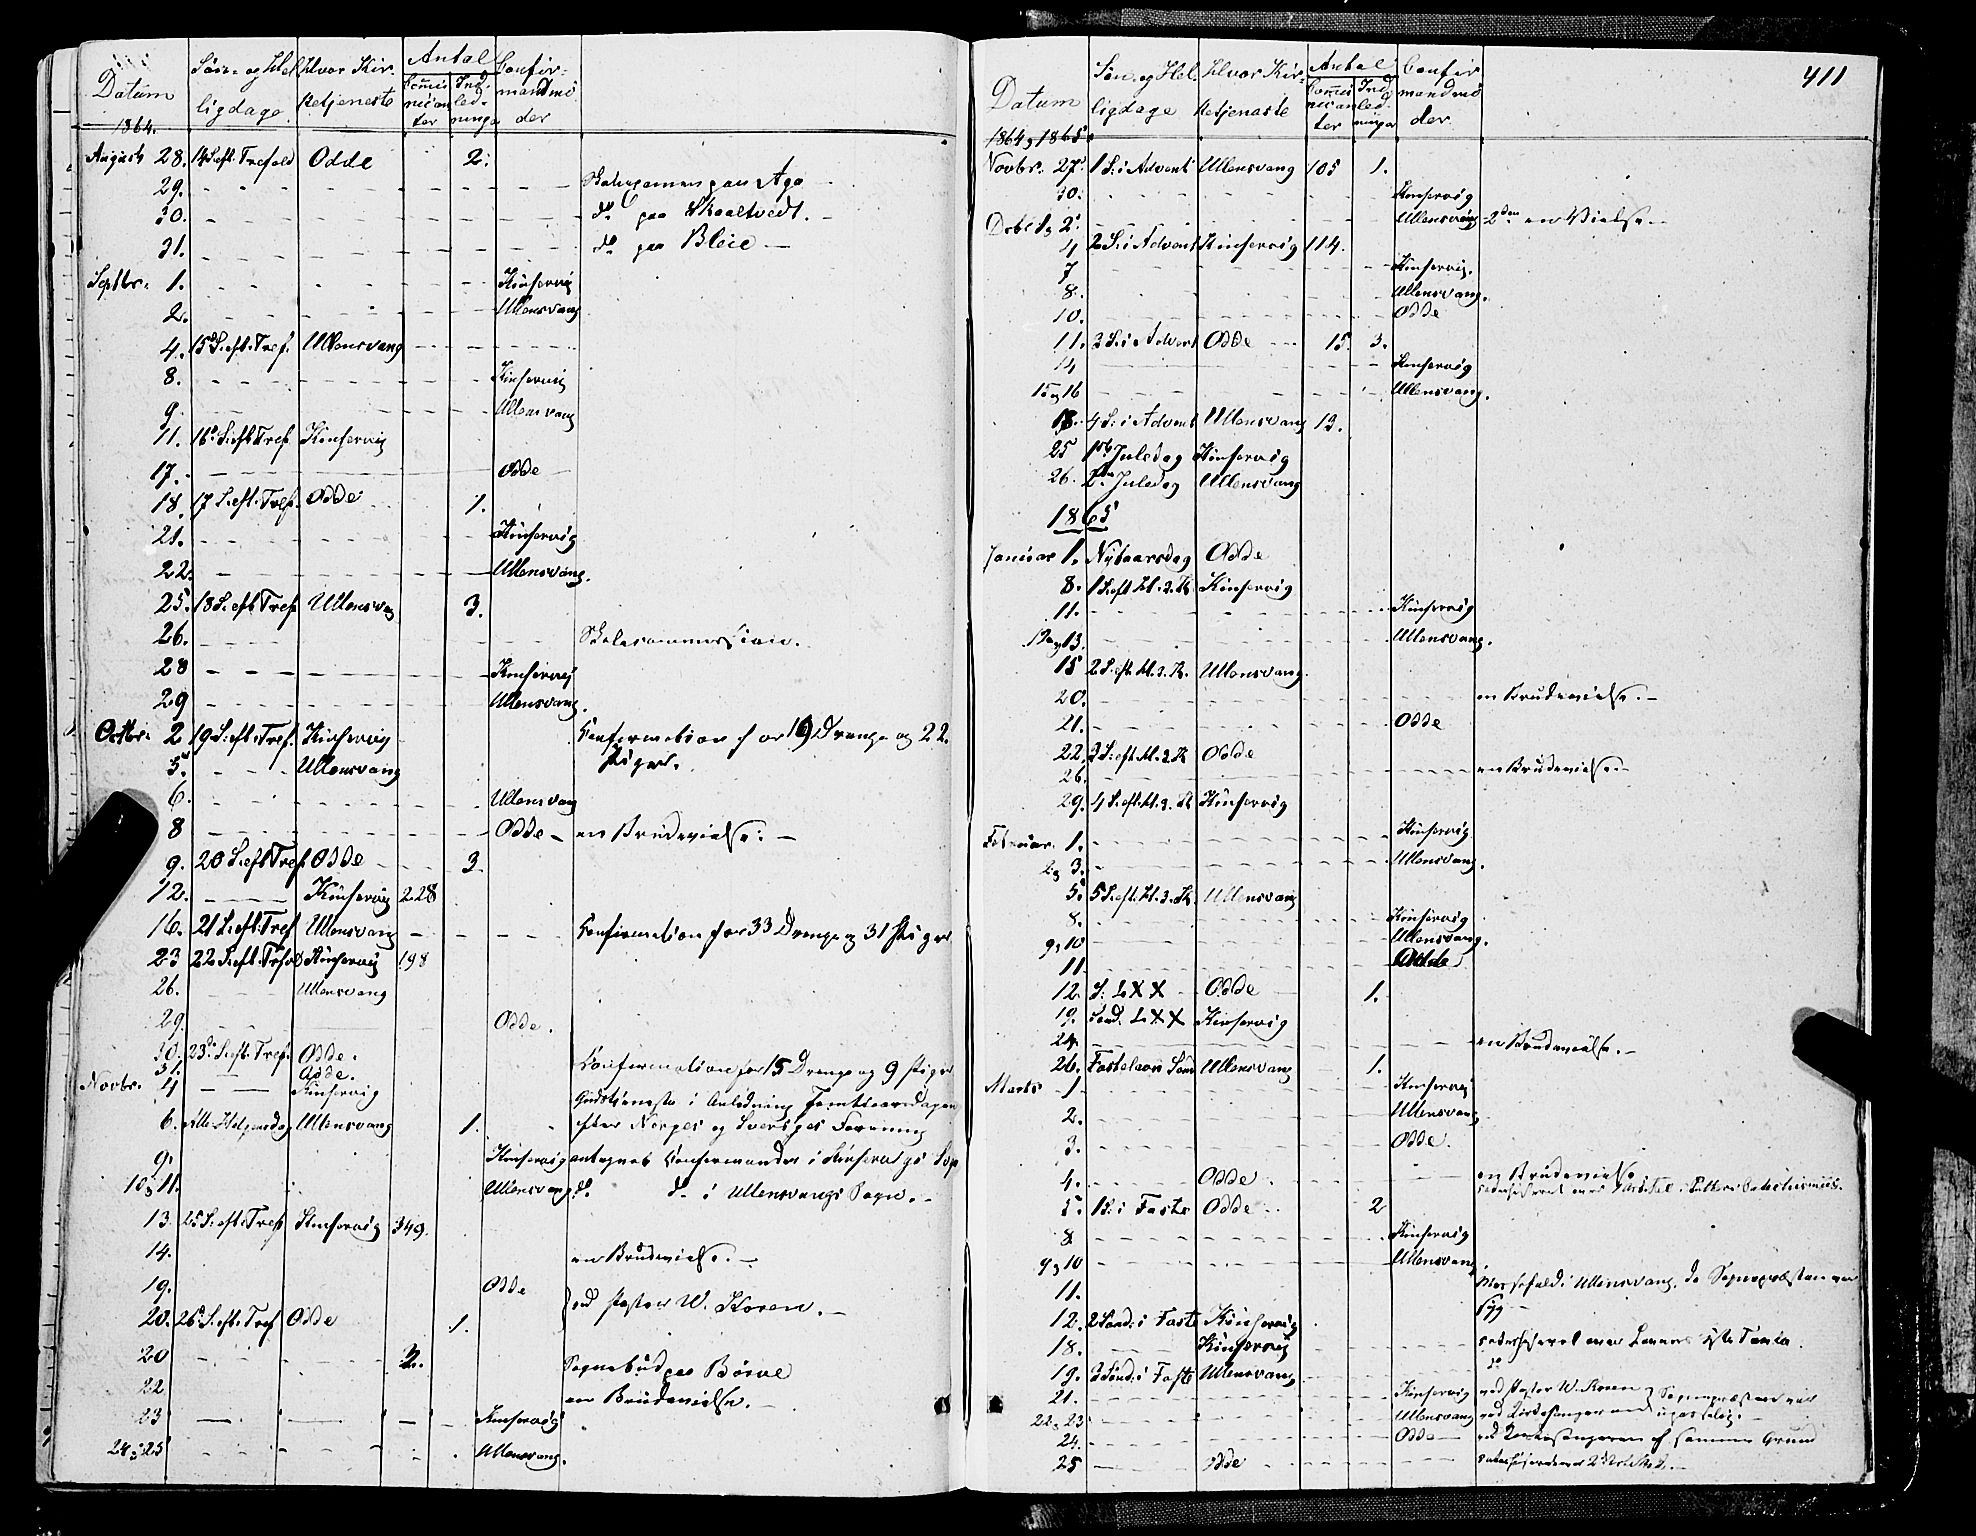 Datum
1864.
Søn- og Hel
ligdage.
Hvor Kir
ketjeneste
Antal
Comu
nican
ter
Ind
led-
ninger
Confir-
mand mö
der
August 28. 14 S. eft. Trefold Odde 2.
29. paa Aga
30. do paa Skaaltvedt.
31. do paa Bleie
Septbr. 1. Kinservig
2. Ullensvang
4. 15 S. eft. Tref. Ullensvang
8. Kinservig
9. Ullensvang
11. 16 S. eft. Tref. Kinservig
17. Odde
18. 17 S. eft. Tref. Odde 1.
21. Kinservig
22. Ullensvang.
25. 18 S. eft Tref Ullensvang 3.
26. Skolecommission.
28 Kinservig
29 Ullensvang.
Octbr. 2 19 S. eft. Tref. Kinservig Confirmation for 19 Drenge og 22.
Piger.
5. Ullensvang
6. Ullensvang
8 Odde en Brudevielse.
9. 20 S. eft Tref Odde 3
12. Kinservig 228
16. 21 S. eft. Tref Ullensvang Confirmation for 33 Drenge og 31 Piger
23 22 S. eft. Trefol Kinservig 198
26. Ullensvang
29. Odde.
30. 23 S. eft. Tref. Odde. Confirmation for 15 Drenge og 9 Piger
31. Odde.
Novbr. 4 Kinservig Gudstjeneste i Anledning Femtiaarsdagen
6. Alle Helgensdag Ullensvang 1. efter Norges og Sveriges Forening
9. Kinservig antegnet Confirmander i Kinservigs Sogn
10 og 11. Ullensvang do do i Ullensvangs Sogn.
13. 25 S. eft. Tref Kinservig 349.
14. en Brudevielse.
19. Odde
ved Pastor W. Koren.
20. 26 S. eft. Tref Odde 1.
20 2. Sognebud paa Børve
22 en Brudevielse.
23 Kinservig
24 og 25 Ullensvang.
411
Datum
1864 og 1865
Søn og Hel
ligdage
Hvor Kir
ketjeneste
Antal
Comu
nican
ter
Ind
led
ninger
Confir
mand mö
der.
Novbr. 27. 1 S. i Advent Ullensvang 105 1.
30. Kinservig
Decbr 1 og 2. Ullensvang 2den en Vielse.
4 2 S. i Advent Kinservig 114.
7 Kinservig.
8. Ullensvang.
10. Odde
11. 3 S. i Advent Odde 15. 3.
14 Kinservig
15 og 16 Ullensvang.
18. 4 S. i Advent Ullensvang 13.
25 1ste Juledag Kinservig
26. 2den Juledag Ullensvang
1865
Januar 1. Nytaarsdag Odde
8. 1 S. eft H. 3. K. Kinservig
11. Kinservig
12 og 13. Ullensvang.
15 2 S. eft. H. 3. K. Ullensvang
20. en Brudevielse.
21. Odde
22. 3 S. eft. H. 3. K Odde
26. en Brudevielse.
29. 4 S. eft. H. 3. K Kinservig
Februar 1. Kinservig
2 og 3. Ullensvang.
5. 5 S. eft. H. 3. K. Ullensvang
8. Kinservig
9 og 10 Ullensvang.
11 Odde
12. S. LXX Odde 1.
19. Sønd. LXX Kinservig
24. en Brudevielse.
26. Fastelavn Sønd Ullensvang 1.
Marts 1 Kinservig
2. Ullensvang
3. Odde.
4. Odde en Brudevielse
5. 1 S. i Faste Odde 2
8 Kinservig
9 og 10 Ullensvang
11. Messefald i Ullensvang, da Sognepræsten var
syg
12. 2 Sønd. i Faste Kinservig
18. Kinservig
19. 3 Sønd. i Faste Ullensvang do
21. Kinservig ved Pastor W. Koren
22 og 23 Ullensvang ved Kirkesanger
24. Odde ved Kirkesangeren af samme Grund
25 Odde